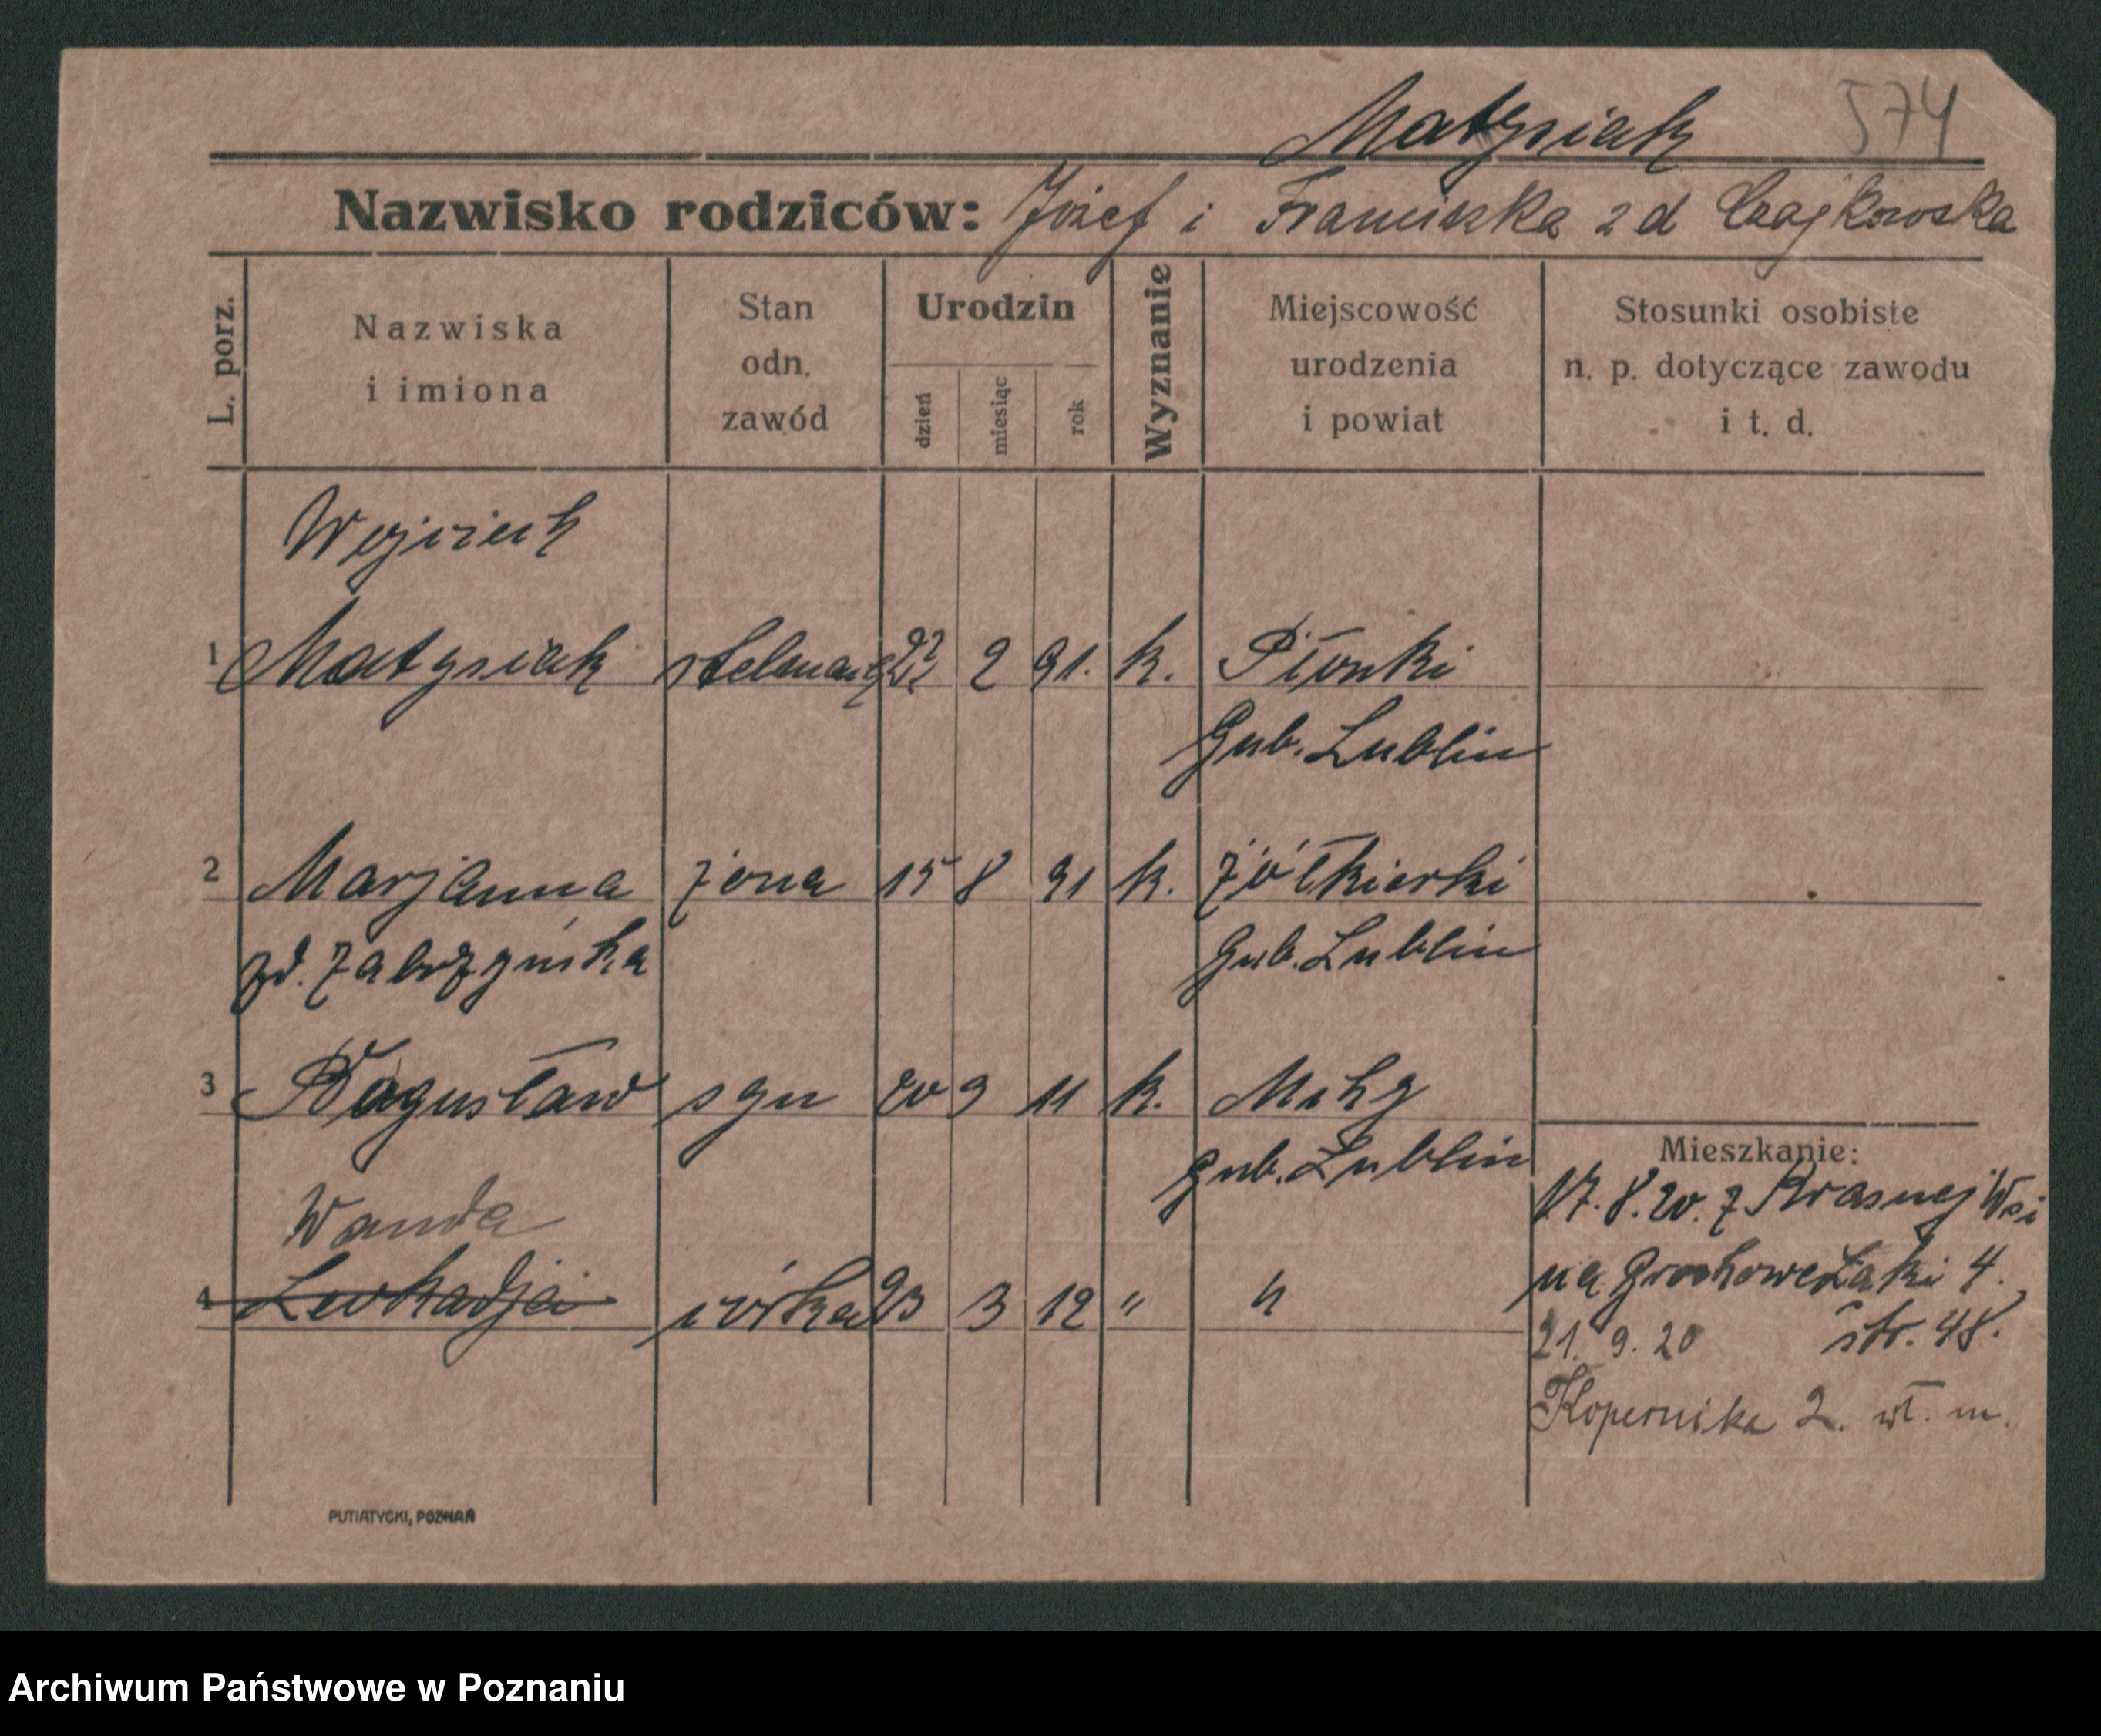 Matysiak 574
Nazwisko rodziców: Józef i Franciszka z d Czajkowska
L. porz.
Nazwiska
i imiona
Stan
odn.
zawód
Urodzin
dzień
miesiąc
rok
Wyznanie
Miejscowość
urodzenia
i powiat
Stosunki osobiste
n. p. dotyczące zawodu
i t. d.
Wojciech
1 Matysiak stelmach 22 2 91. k. Płonki
Gub. Lublin
2 Marjanna żona 15 8 91 k. Żółkierki
zd. Zabrzyńska Gub. Lublin
3 Bogusław syn 20 9 11 k.
gub. Lublin
Mieszkanie:
17.8.20. z Krasnej Wsi
Wanda
na Grochowe Łąki 4.
4 Leokadja córka 23 3 12 " "
21. 9. 20 str. 48.
Kopernika 2. wł. m.
PUTIATYCKI, POZNAŃ
Archiwum Państwowe w Poznaniu